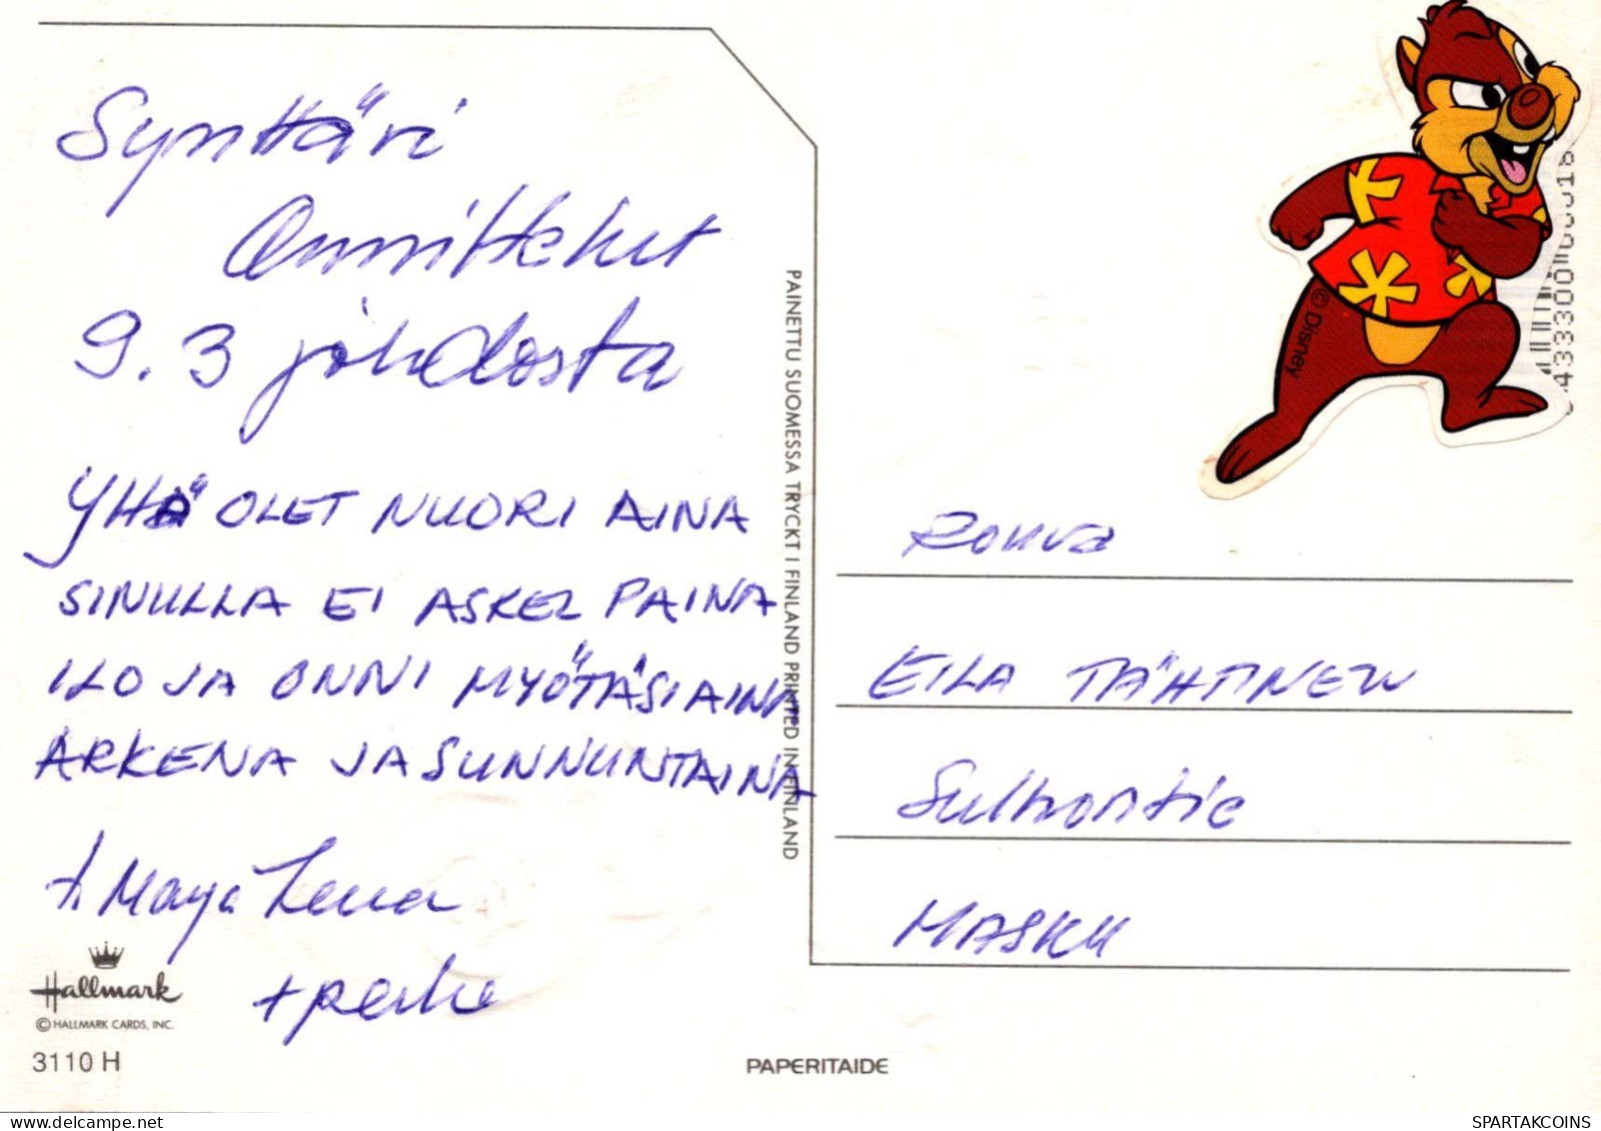 Synttäri
Onnittelut
9.3 johdosta
YHÄ OLET NUORI AINA
SINULLA EI ASKEL PAINA
ILO JA ONNI MYÖTÄSI AINA
ARKENA JA SUNNUNTAINA
t. Marja Leena
+ perhe
Hallmark
© HALLMARK CARDS, INC.
3110 H
PAINETTU SUOMESSA TRYCKT I FINLAND PRINTED IN FINLAND
PAPERITAIDE
© Disney
Rouva
EILA TÄHTINEN
MASKU
SPARTAKCOINS